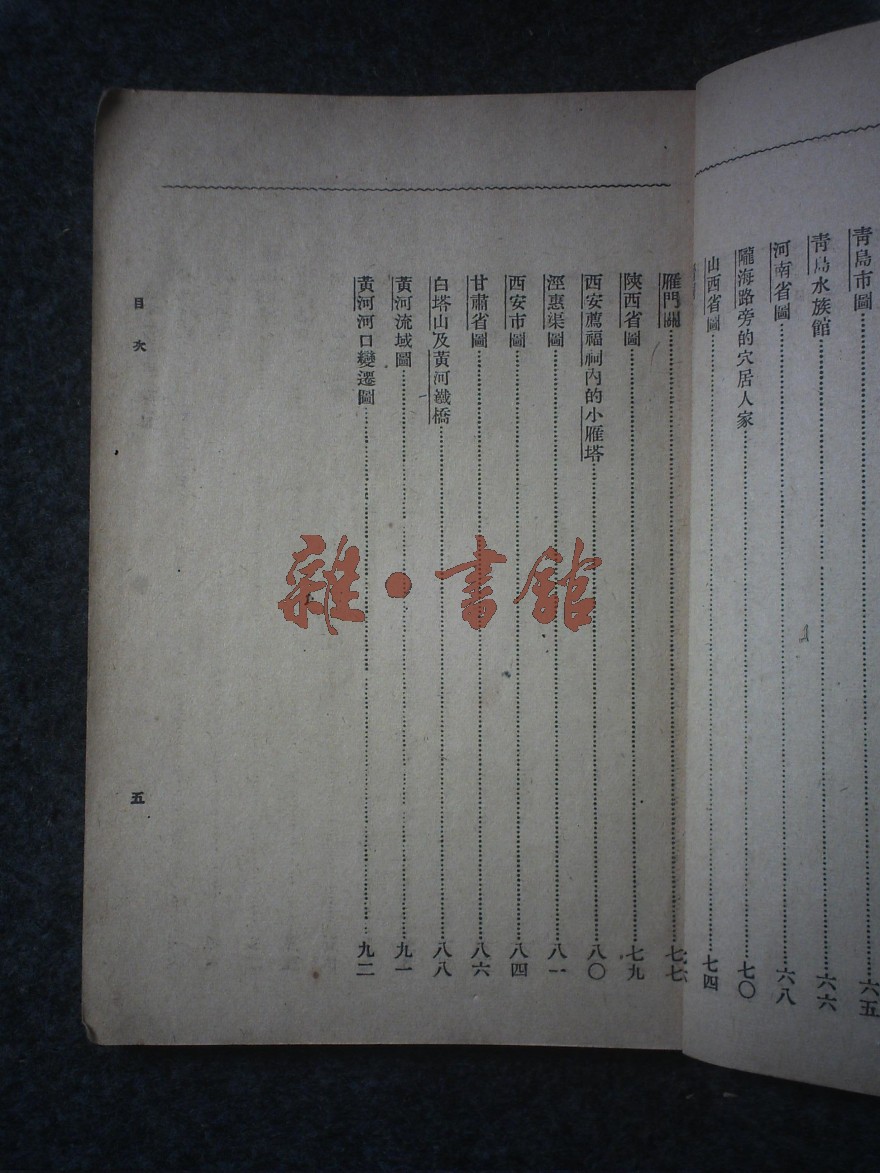 青島市圖……六五
青島水族館……六六
河南省圖……六八
隴海路旁的穴居人家……七〇
山西省圖……七四
雁門關……七七
陝西省圖……七九
西安薦福祠內的小雁塔……八〇
涇惠渠圖……八一
西安市圖……八四
甘肅省圖……八六
白塔山及黃河鐵橋……八八
黃河流域圖……九一
黃河河口變遷圖……九二
目次
五
雜·書館